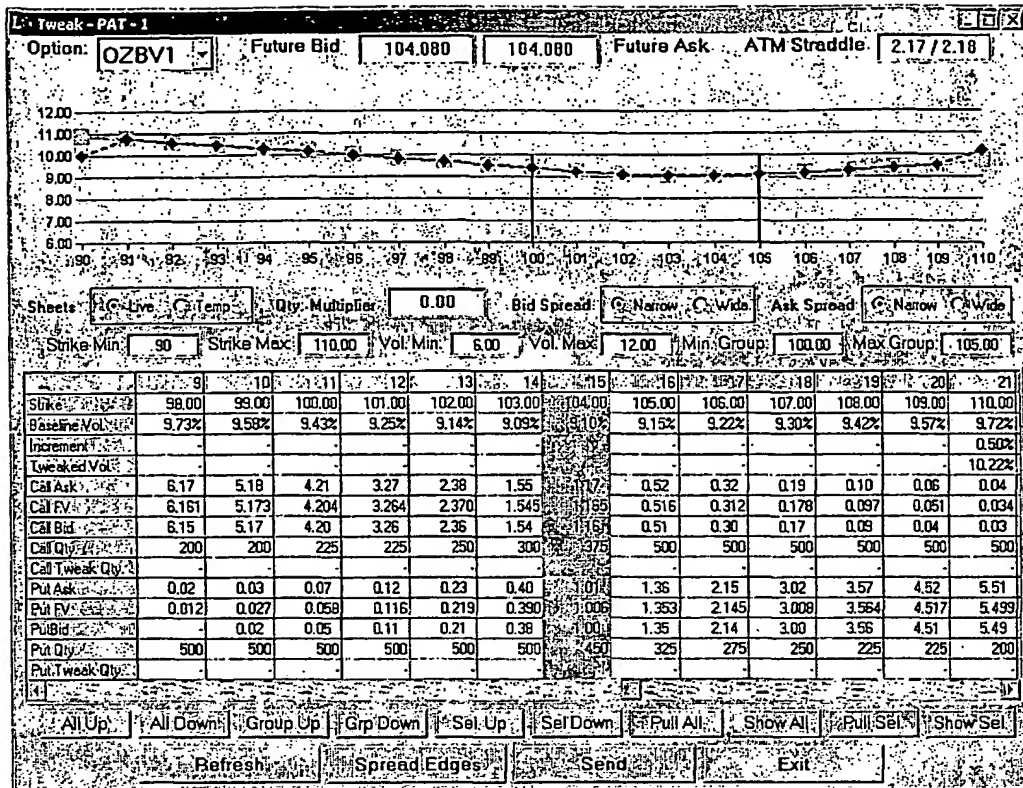 Tweak - PAT - 1
Option: OZBV1 Future Bid 104.080 104.080 Future Ask ATM Straddle 2.17 / 2.18
12.00
11.00
10.00
9.00
8.00
7.00
6.00
90 91 92 93 94 95 96 97 98 99 100 101 102 103 104 105 106 107 108 109 110
Sheets Live Temp Qty. Multiplier 0.00 Bid Spread Narrow Wide Ask Spread Narrow Wide
Strike Min 90 Strike Max 110.00 Vol. Min. 6.00 Vol. Max 12.00 Min. Group 100.00 Max Group 105.00
9 10 11 12 13 14 15 16 17 18 19 20 21
Strike 98.00 99.00 100.00 101.00 102.00 103.00 104.00 105.00 106.00 107.00 108.00 109.00 110.00
Baseline Vol. 9.73% 9.58% 9.43% 9.25% 9.14% 9.09% 9.10% 9.15% 9.22% 9.30% 9.42% 9.57% 9.72%
Increment - - - - - - - - - - - 0.50%
Tweaked Vol. - - - - - - - - - - - 10.22%
Call Ask 6.17 5.18 4.21 3.27 2.38 1.55 1.17 0.52 0.32 0.19 0.10 0.06 0.04
Call FV 6.161 5.173 4.204 3.264 2.370 1.545 0.516 0.312 0.178 0.097 0.051 0.034
Call Bid 6.15 5.17 4.20 3.26 2.36 1.54 1.16 0.51 0.30 0.17 0.09 0.04 0.03
Call Qty 200 200 225 225 250 300 375 500 500 500 500 500 500
Call Tweak Qty. - - - - - - - - - - - -
Put Ask 0.02 0.03 0.07 0.12 0.23 0.40 1.01 1.36 2.15 3.02 3.57 4.52 5.51
Put FV 0.012 0.027 0.058 0.116 0.219 0.390 1.006 1.353 2.145 3.008 3.564 4.517 5.499
Put Bid - 0.02 0.05 0.11 0.21 0.38 1.00 1.35 2.14 3.00 3.56 4.51 5.49
Put Qty 500 500 500 500 500 500 450 325 275 250 225 225 200
Put Tweak Qty - - - - - - - - - - - -
All Up All Down Group Up Grp Down Sel. Up Sel Down Pull All Show All Pull Sel. Show Sel.
Refresh Spread Edges Send Exit